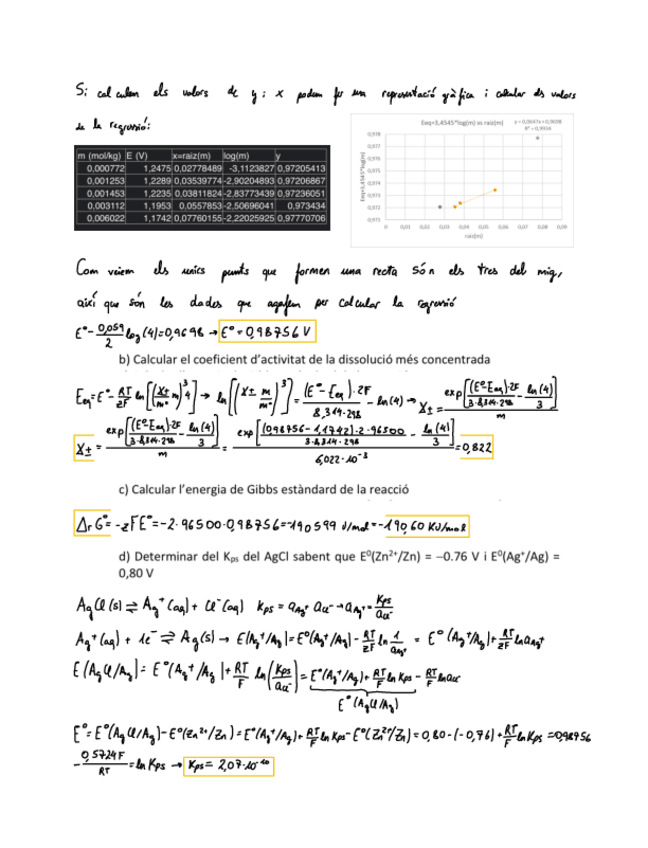 Si calculem els valors de y i x podem fer una representació gràfica i calcular els valors
de la regressió:
m (mol/kg) E (V) x=raiz(m) log(m) y
0,000772 1,2475 0,02778489 -3,1123827 0,97205413
0,001253 1,2289 0,03539774 -2,90204893 0,97206867
0,001453 1,2235 0,03811824 -2,83773439 0,97236051
0,003112 1,1953 0,0557853 -2,50696041 0,973434
0,006022 1,1742 0,07760155 -2,22025925 0,97770706
Eeq+3,4345*log(m) vs raiz(m)
y = 0,0647x + 0,9698
R² = 0,9934
0,978
0,977
0,976
0,975
0,974
0,973
0,972
0,971
0 0,01 0,02 0,03 0,04 0,05 0,06 0,07 0,08 0,09
raiz(m)
Com veiem els unics punts que formen una recta són els tres del mig,
així que són les dades que agafem per calcular la regressió
E°- 0,059/2 log(4)=0,9698 → E°=0,98756 V
b) Calcular el coeficient d'activitat de la dissolució més concentrada
Eeq=E°- RT/2F ln[(γ± m/m°)³ 4] → ln[(γ± m/m°)³] = (E°-Eeq)·2F/8,314·298 - ln(4) → γ± = exp[(E°-Eeq)·2F/3·8,314·298 - ln(4)/3]/m
γ± = exp[(E°-Eeq)·2F/3·8,314·298 - ln(4)/3]/m = exp[(0,98756-1,1742)·2·96500/3·8,314·298 - ln(4)/3]/6,022·10⁻³ = 0,822
c) Calcular l'energia de Gibbs estàndard de la reacció
ΔrG°= -zFE°=-2·96500·0,98756=-190599 J/mol=-190,60 KJ/mol
d) Determinar del Kps del AgCl sabent que E⁰(Zn²⁺/Zn) = −0.76 V i E⁰(Ag⁺/Ag) =
0,80 V
AgCl(s) ⇌ Ag⁺(aq) + Cl⁻(aq) Kps = aAg⁺ aCl⁻ → aAg⁺ = Kps/aCl⁻
Ag⁺(aq) + 1e⁻ ⇌ Ag(s) → E(Ag⁺/Ag)=E°(Ag⁺/Ag) - RT/zF ln 1/aAg⁺ = E°(Ag⁺/Ag)+ RT/zF ln aAg⁺
E(AgCl/Ag)= E°(Ag⁺/Ag)+ RT/F ln(Kps/aCl⁻) = E°(Ag⁺/Ag)+ RT/F ln Kps - RT/F ln aCl⁻
E°(AgCl/Ag)
E°= E°(AgCl/Ag)-E°(Zn²⁺/Zn)=E°(Ag⁺/Ag)+ RT/F ln Kps-E°(Zn²⁺/Zn)=0,80-(-0,76)+ RT/F ln Kps =0,98756
- 0,5724F/RT = ln Kps → Kps= 2,07·10⁻¹⁰